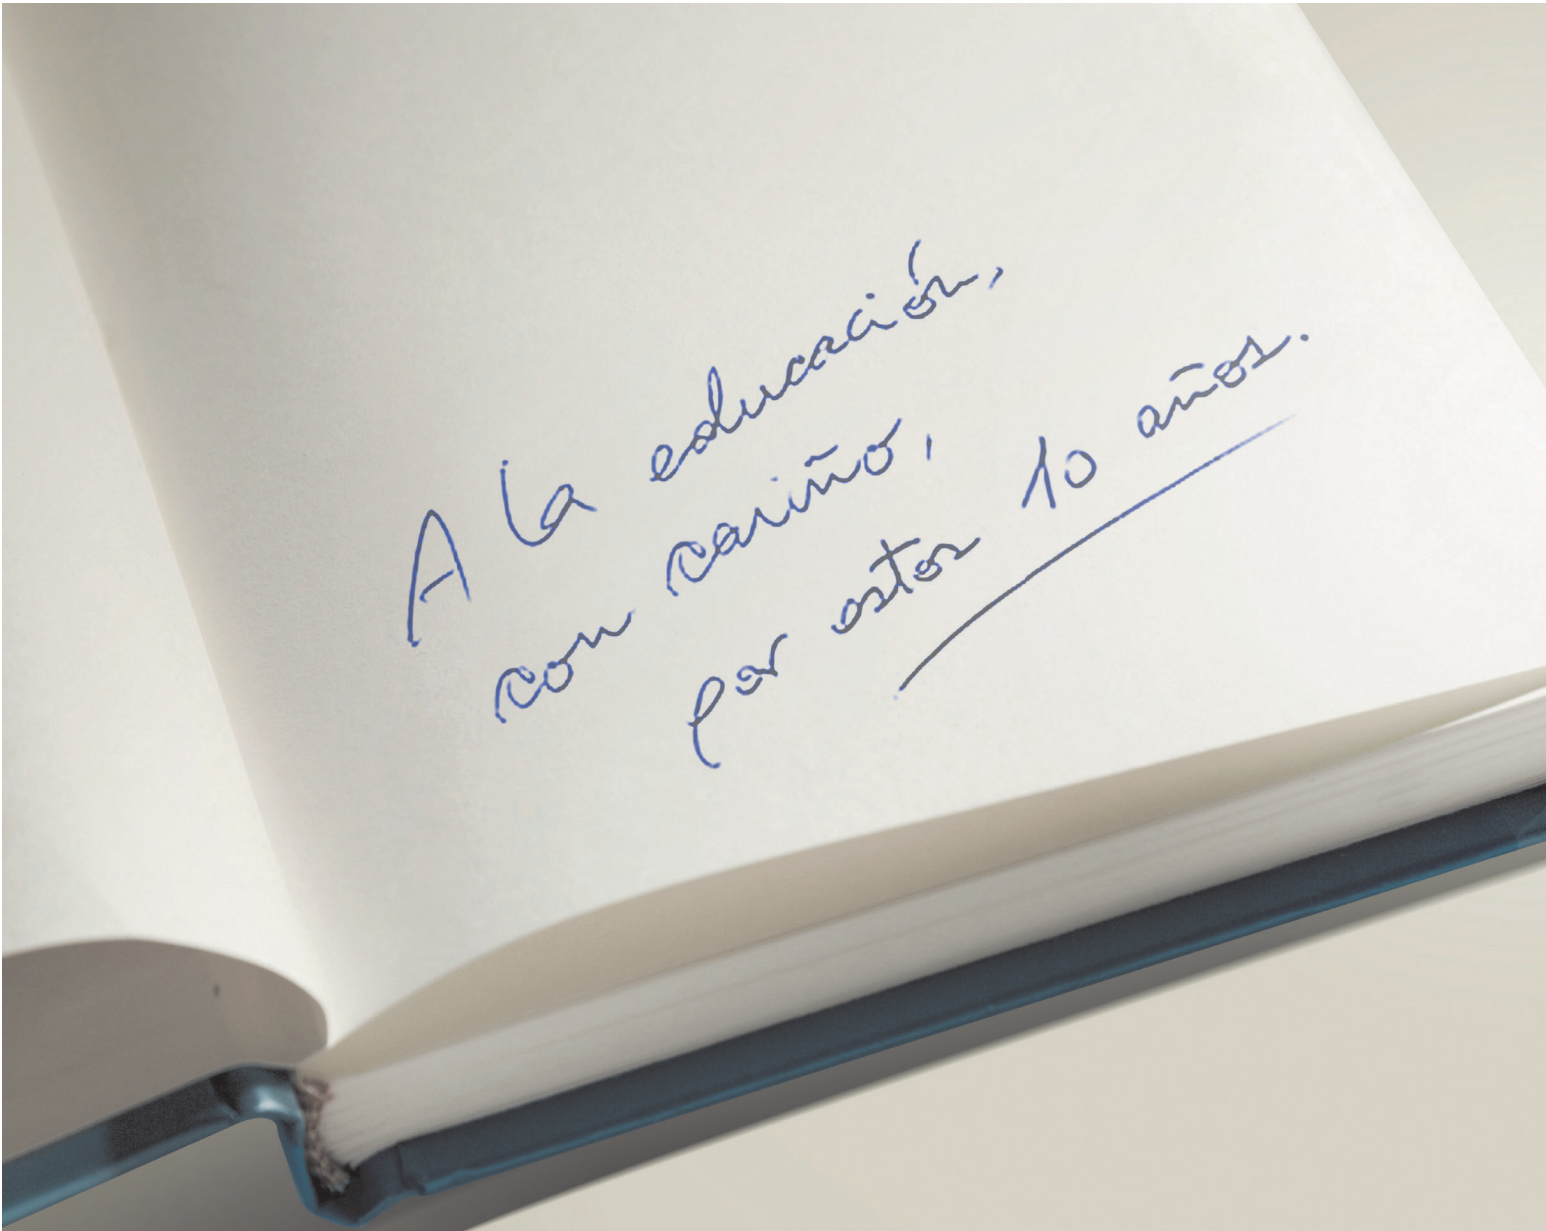 A la educación,
con cariño,
por estos 10 años.